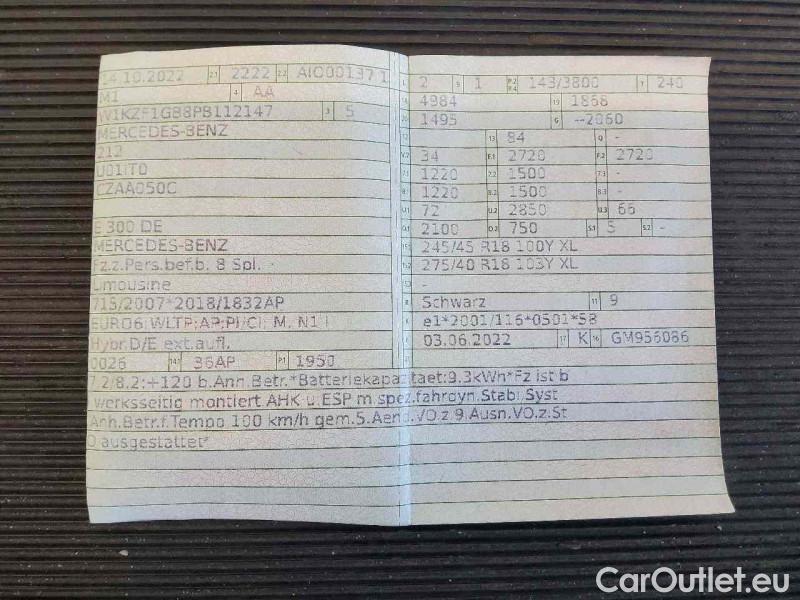 14.10.2022 2.1 2222 2.2 AIO00137 1
M1 4 AA
W1KZF1GB8PB112147 3 5
MERCEDES-BENZ
212
U01IT0
CZAA050C
E 300 DE
MERCEDES-BENZ
Fz.z.Pers.bef.b. 8 Spl.
Limousine
715/2007*2018/1832AP
EURO6;WLTP;AP;PI/CI; M, N1 I
Hybr.D/E ext.aufl.
0026 14.1 36AP P.1 1950
L 2 9 1 P.2 P.4 143/3800 T 240
18 4984 19 1868
20 1495 G --2060
12 13 84 Q -
V.7 34 F.1 2720 F.2 2720
7.1 1220 7.2 1500 7.3 -
8.1 1220 8.2 1500 8.3 -
U.1 72 U.2 2850 U.3 66
O.1 2100 O.2 750 S.1 5 S.2 -
15.1 245/45 R18 100Y XL
15.2 275/40 R18 103Y XL
-
R Schwarz 11 9
K e1*2001/116*0501*58
6 03.06.2022 17 K 16 GM956086
7.2/8.2:+120 b.Anh.Betr.*Batteriekapazitaet:9.3kWh*Fz ist b
werksseitig montiert AHK u.ESP m.spez.fahrdyn.Stabi.Syst
Anh.Betr.f.Tempo 100 km/h gem.5.Aend.VO.z.9.Ausn.VO.z.St
O ausgestattet*
CarOutlet.eu